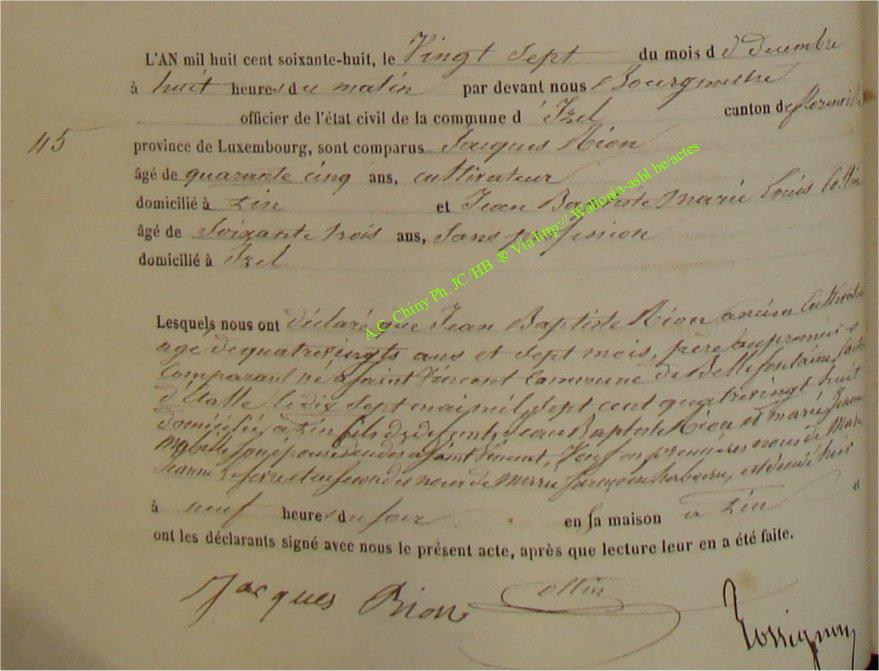 L'AN mil huit cent soixante-huit, le Vingt Sept du mois d e Decembre
à huit heures du matin par devant nous Bourgmestre
officier de l'état civil de la commune d 'Izel canton de florenville
45 province de Luxembourg, sont comparus Jacques Rion
âgé de quarante cinq ans, cultivateur
domicilié à Pin et Jean Baptiste Marie Louis Collin
âgé de Soixante trois ans, Sans profession
domicilié à Izel
A.C. Chiny Ph. JC /HB ® Via http://.Wallonia-asbl.be/actes
Lesquels nous ont déclaré que Jean Baptiste Rion ancien Cultivateur
agé de quatre vingts ans et Sept mois, père au premier
Comparant né a Saint Vincent Commune de Bellefontaine Canton
d'Etalle le dix Sept mai mil Sept cent quatre vingt huit
domicilié a Pin fils de defunts Jean Baptiste Rion et Marie Jeanne
décédés a Saint Vincent, Veuf en premières noces de Marie
Jeanne et en secondes noces de Marie françoise est décédé hier
à neuf heures du soir en sa maison a Pin d
ont les déclarants signé avec nous le présent acte, après que lecture leur en a été faite.
Jacques Rion Collin Rossignon